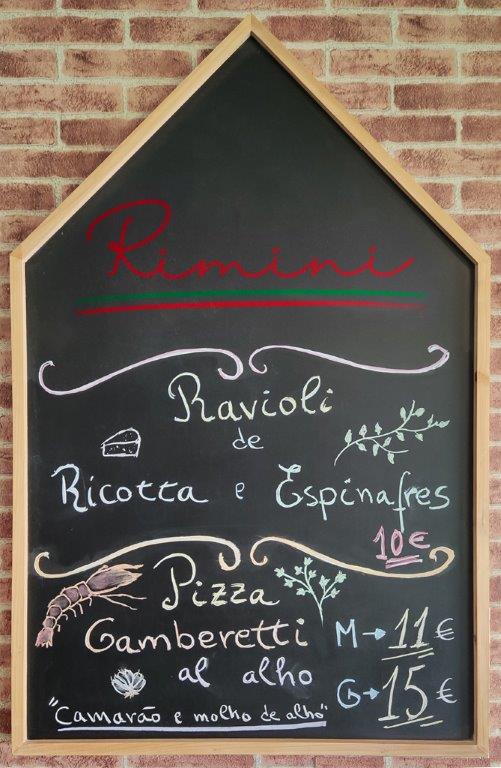 Rimini
Ravioli
de
Ricotta e Espinafres
10€
Pizza
Gamberetti
al alho
M→11€
G→15€
"Camarão e molho de alho"